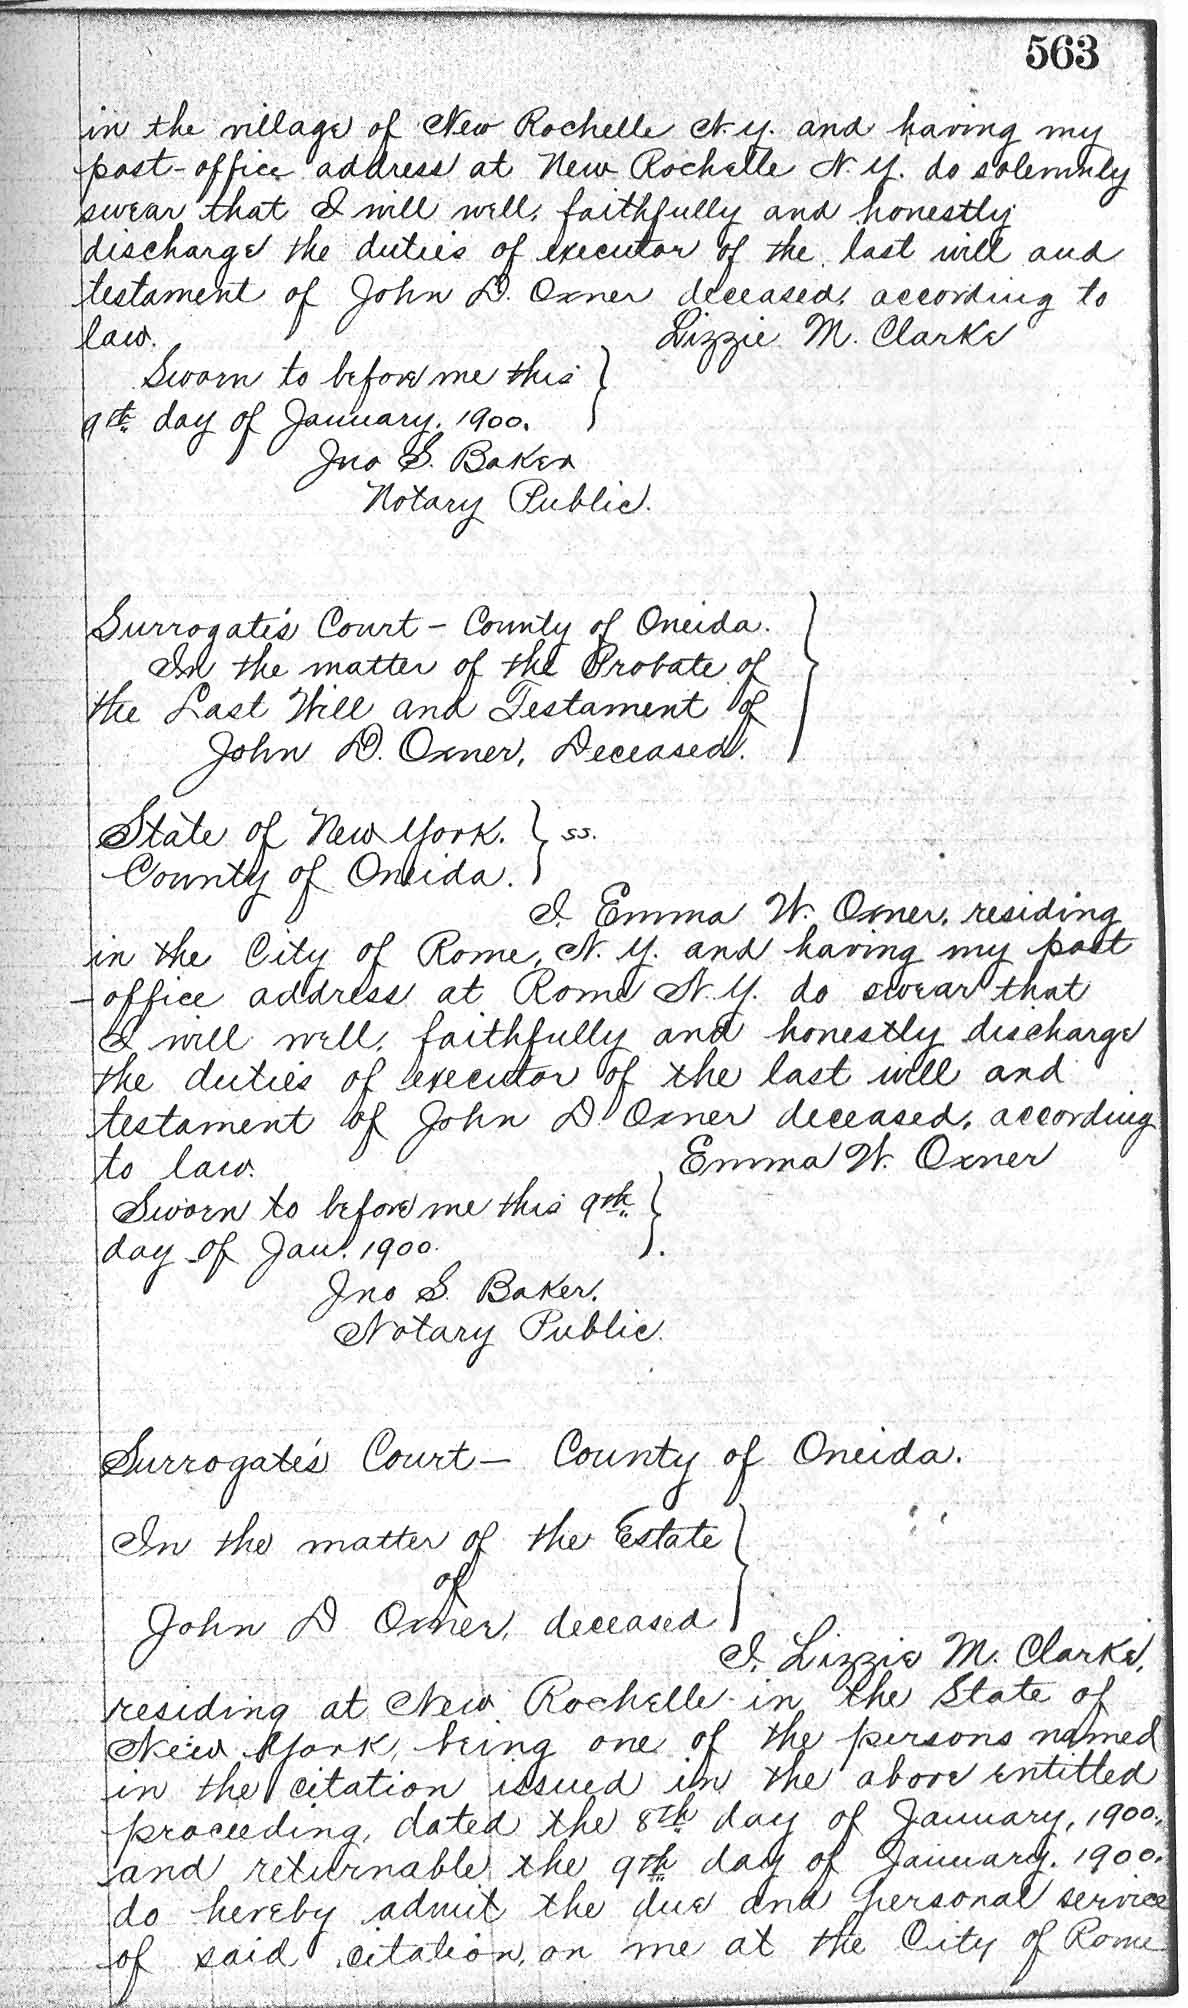 563
in the village of New Rochelle N.Y. and having my
post-office address at New Rochelle N.Y. do solemnly
swear that I will well, faithfully and honestly
discharge the duties of executor of the last will and
testament of John D. Oxner deceased, according to
law. Lizzie M. Clarke
Sworn to before me this
9th day of January, 1900.
Jno S. Baker
Notary Public.
Surrogate's Court - County of Oneida.
In the matter of the Probate of
the Last Will and Testament of
John D. Oxner, Deceased.
State of New York. } ss.
County of Oneida.
I, Emma W. Oxner, residing
in the City of Rome, N.Y. and having my post
-office address at Rome N.Y. do swear that
I will well, faithfully and honestly discharge
the duties of executor of the last will and
testament of John D Oxner deceased, according
to law. Emma W. Oxner
Sworn to before me this 9th
day of Jan. 1900.
Jno S. Baker.
Notary Public.
Surrogate's Court - County of Oneida.
In the matter of the Estate
of
John D Oxner, deceased
I, Lizzie M. Clarke,
residing at New Rochelle in the State of
New York, being one of the persons named
in the citation issued in the above entitled
proceeding, dated the 8th day of January, 1900,
and returnable the 9th day of January, 1900.
do hereby admit the due and personal service
of said citation, on me at the City of Rome